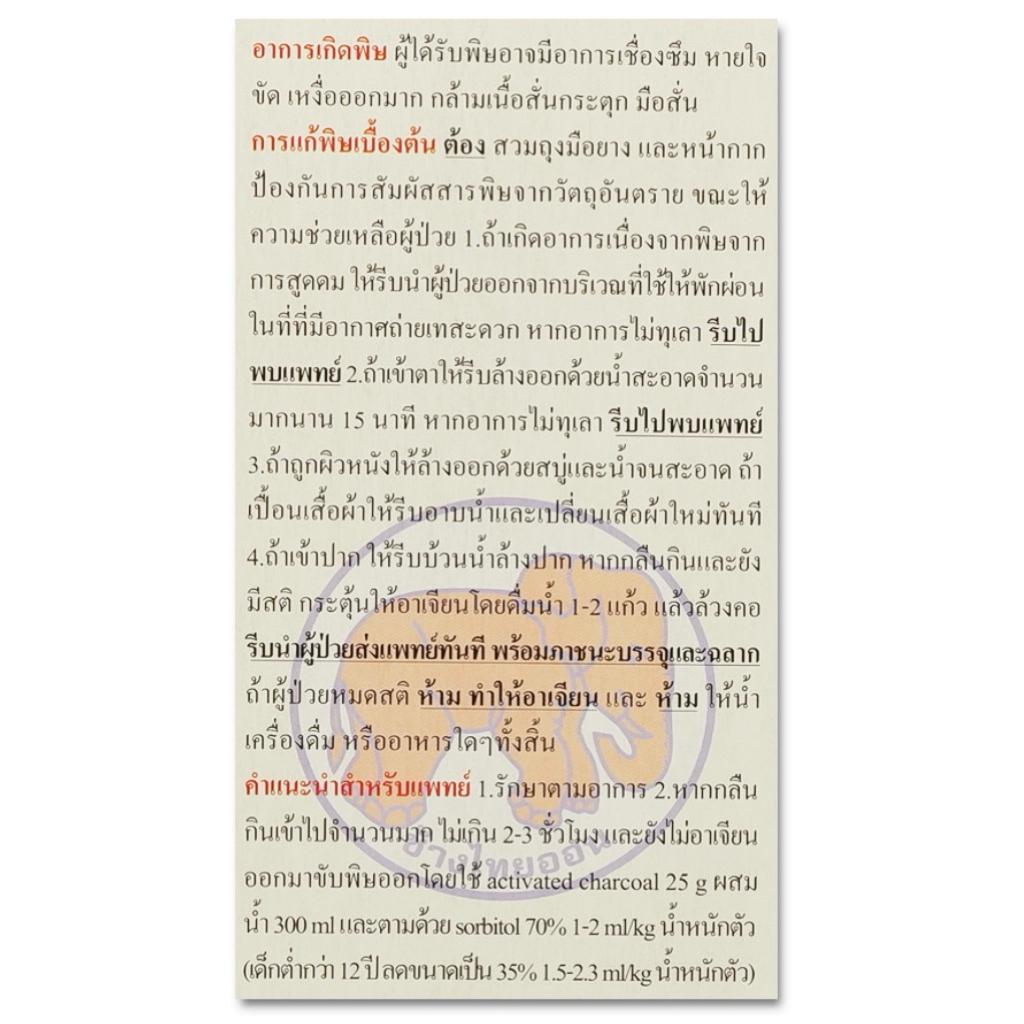 อาการเกิดพิษ ผู้ได้รับพิษอาจมีอาการเชื่องซึม หายใจ
ขัด เหงื่อออกมาก กล้ามเนื้อสั่นกระตุก มือสั่น
การแก้พิษเบื้องต้น ต้อง สวมถุงมือยาง และหน้ากาก
ป้องกันการสัมผัสสารพิษจากวัตถุอันตราย ขณะให้
ความช่วยเหลือผู้ป่วย 1.ถ้าเกิดอาการเนื่องจากพิษจาก
การสูดดม ให้รีบนำผู้ป่วยออกจากบริเวณที่ใช้ให้พักผ่อน
ในที่ที่มีอากาศถ่ายเทสะดวก หากอาการไม่ทุเลา รีบไป
พบแพทย์ 2.ถ้าเข้าตาให้รีบล้างออกด้วยน้ำสะอาดจำนวน
มากนาน 15 นาที หากอาการไม่ทุเลา รีบไปพบแพทย์
3.ถ้าถูกผิวหนังให้ล้างออกด้วยสบู่และน้ำจนสะอาด ถ้า
เปื้อนเสื้อผ้าให้รีบอาบน้ำและเปลี่ยนเสื้อผ้าใหม่ทันที
4.ถ้าเข้าปาก ให้รีบบ้วนน้ำล้างปาก หากกลืนกินและยัง
มีสติ กระตุ้นให้อาเจียนโดยดื่มน้ำ 1-2 แก้ว แล้วล้วงคอ
รีบนำผู้ป่วยส่งแพทย์ทันที พร้อมภาชนะบรรจุและฉลาก
ถ้าผู้ป่วยหมดสติ ห้าม ทำให้อาเจียน และ ห้าม ให้น้ำ
เครื่องดื่ม หรืออาหารใดๆทั้งสิ้น
คำแนะนำสำหรับแพทย์ 1.รักษาตามอาการ 2.หากกลืน
กินเข้าไปจำนวนมาก ไม่เกิน 2-3 ชั่วโมง และยังไม่อาเจียน
ออกมาขับพิษออกโดยใช้ activated charcoal 25 g ผสม
น้ำ 300 ml และตามด้วย sorbitol 70% 1-2 ml/kg น้ำหนักตัว
(เด็กต่ำกว่า 12 ปี ลดขนาดเป็น 35% 1.5-2.3 ml/kg น้ำหนักตัว)